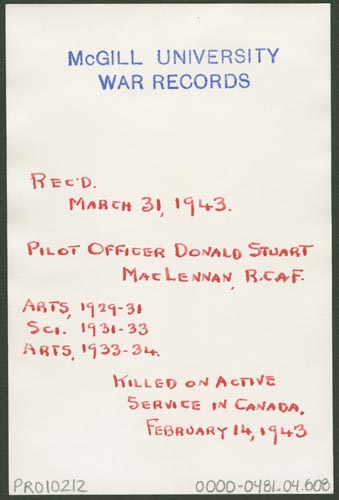 McGILL UNIVERSITY
WAR RECORDS
REC'D.
MARCH 31, 1943.
PILOT OFFICER DONALD STUART
MACLENNAN, R.C.A.F.
ARTS, 1929-31
SCI. 1931-33
ARTS, 1933-34.
KILLED ON ACTIVE
SERVICE IN CANADA,
FEBRUARY 14, 1943
PR010212
0000-0481.04.608